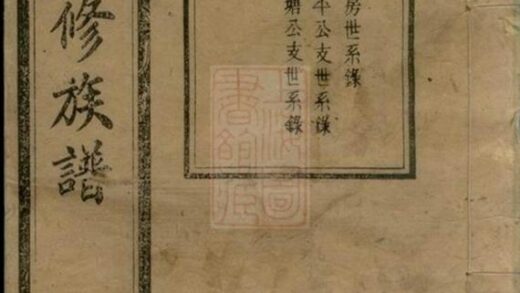 房世系錄
公支世系錄
公支世系錄
修族譜
上海圖書館藏